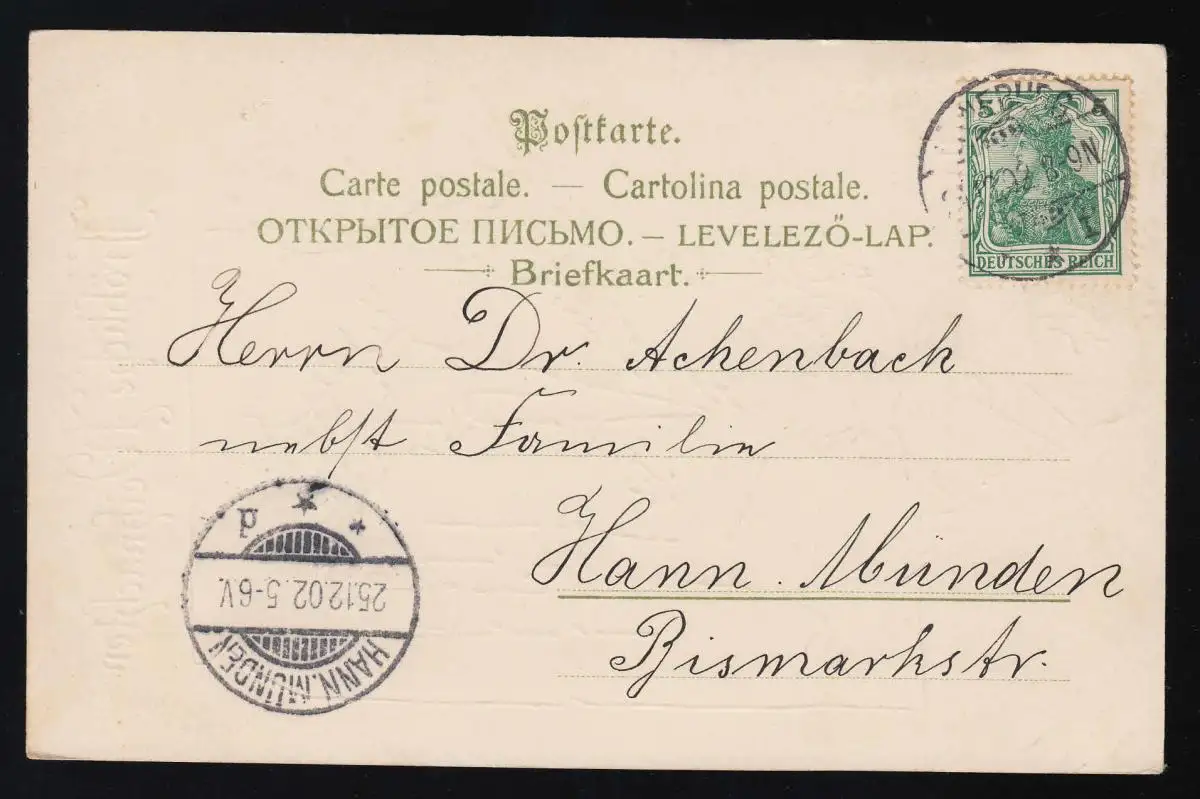 Postkarte.
Carte postale. — Cartolina postale.
ОТКРЫТОЕ ПИСЬМО. – LEVELEZŐ-LAP.
Briefkaart.
5
8-9N
DEUTSCHES REICH
Herrn Dr. Achenbach
nebst Familie
Hann. Münden
Bismarkstr.
p
25.12.02.5-6V.
HANN. MÜNDEN